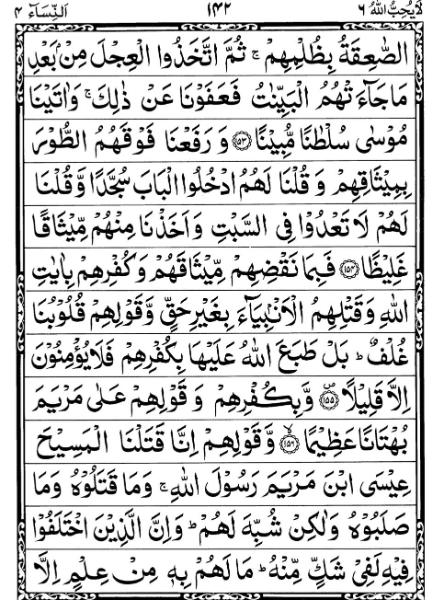 لَا يُحِبُّ اللهُ ٦ ١٤٢ اَلنِّسَآء ٤
الصّٰعِقَةُ بِظُلْمِهِمْ ۚ ثُمَّ اتَّخَذُوا الْعِجْلَ مِنْۢ بَعْدِ
مَا جَآءَتْهُمُ الْبَيِّنٰتُ فَعَفَوْنَا عَنْ ذٰلِكَ ۚ وَاٰتَيْنَا
مُوْسٰى سُلْطٰنًا مُّبِيْنًا ﴿١٥٣﴾ وَ رَفَعْنَا فَوْقَهُمُ الطُّوْرَ
بِمِيْثَاقِهِمْ وَ قُلْنَا لَهُمُ ادْخُلُوا الْبَابَ سُجَّدًا وَّ قُلْنَا
لَهُمْ لَا تَعْدُوْا فِى السَّبْتِ وَ اَخَذْنَا مِنْهُمْ مِّيْثَاقًا
غَلِيْظًا ﴿١٥٤﴾ فَبِمَا نَقْضِهِمْ مِّيْثَاقَهُمْ وَ كُفْرِهِمْ بِاٰيٰتِ
اللهِ وَ قَتْلِهِمُ الْاَنْۢبِيَآءَ بِغَيْرِ حَقٍّ وَّ قَوْلِهِمْ قُلُوْبُنَا
غُلْفٌ ؕ بَلْ طَبَعَ اللهُ عَلَيْهَا بِكُفْرِهِمْ فَلَا يُؤْمِنُوْنَ
اِلَّا قَلِيْلًا ﴿١٥٥﴾ وَّ بِكُفْرِهِمْ وَ قَوْلِهِمْ عَلٰى مَرْيَمَ
بُهْتَانًا عَظِيْمًا ﴿١٥٦﴾ وَّ قَوْلِهِمْ اِنَّا قَتَلْنَا الْمَسِيْحَ
عِيْسَى ابْنَ مَرْيَمَ رَسُوْلَ اللهِ ۚ وَمَا قَتَلُوْهُ وَمَا
صَلَبُوْهُ وَلٰكِنْ شُبِّهَ لَهُمْ ؕ وَاِنَّ الَّذِيْنَ اخْتَلَفُوْا
فِيْهِ لَفِىْ شَكٍّ مِّنْهُ ؕ مَا لَهُمْ بِهٖ مِنْ عِلْمٍ اِلَّا